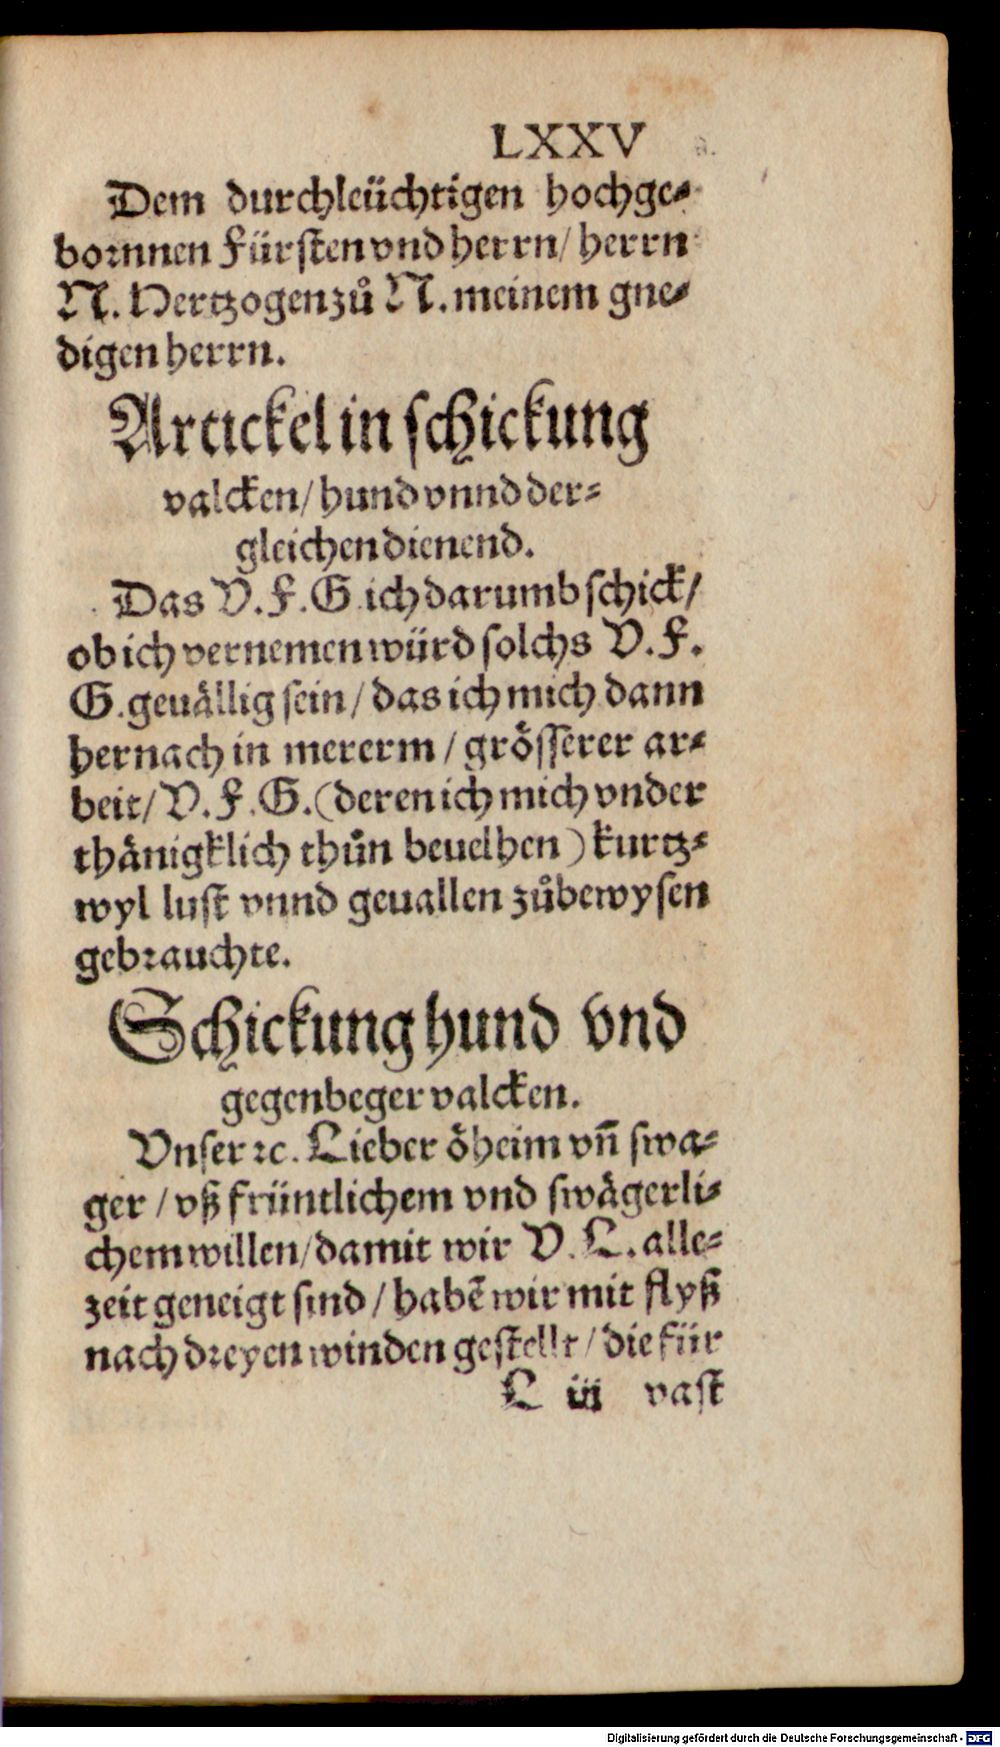 LXXV
Dem durchleüchtigen hochge⸗
bornnen Fürsten vnd herrn/ herrn
N. Hertzogen zů N. meinem gne⸗
digen herrn.
Artickel in schickung
valcken/ hund vnnd der⸗
gleichen dienend.
Das V.F.G ich darumb schick/
ob ich vernemen würd solchs V.F.
G. geuällig sein/ das ich mich dann
hernach in mererm/ grösserer ar⸗
beit/ V.F.G. (deren ich mich vnder
thänigklich thůn beuelhen) kurtz⸗
wyl lust vnnd geuallen zůbewysen
gebrauchte.
Schickung hund vnd
gegenbeger valcken.
Vnser ꝛc. Lieber öheim vn̄ swa⸗
ger/ vß früntlichem vnd swägerli⸗
chem willen/ damit wir V.L. alle⸗
zeit geneigt sind/ habē wir mit flyß
nach dreyen winden gestellt/ die für
L iij vast
Digitalisierung gefördert durch die Deutsche Forschungsgemeinschaft - DFG